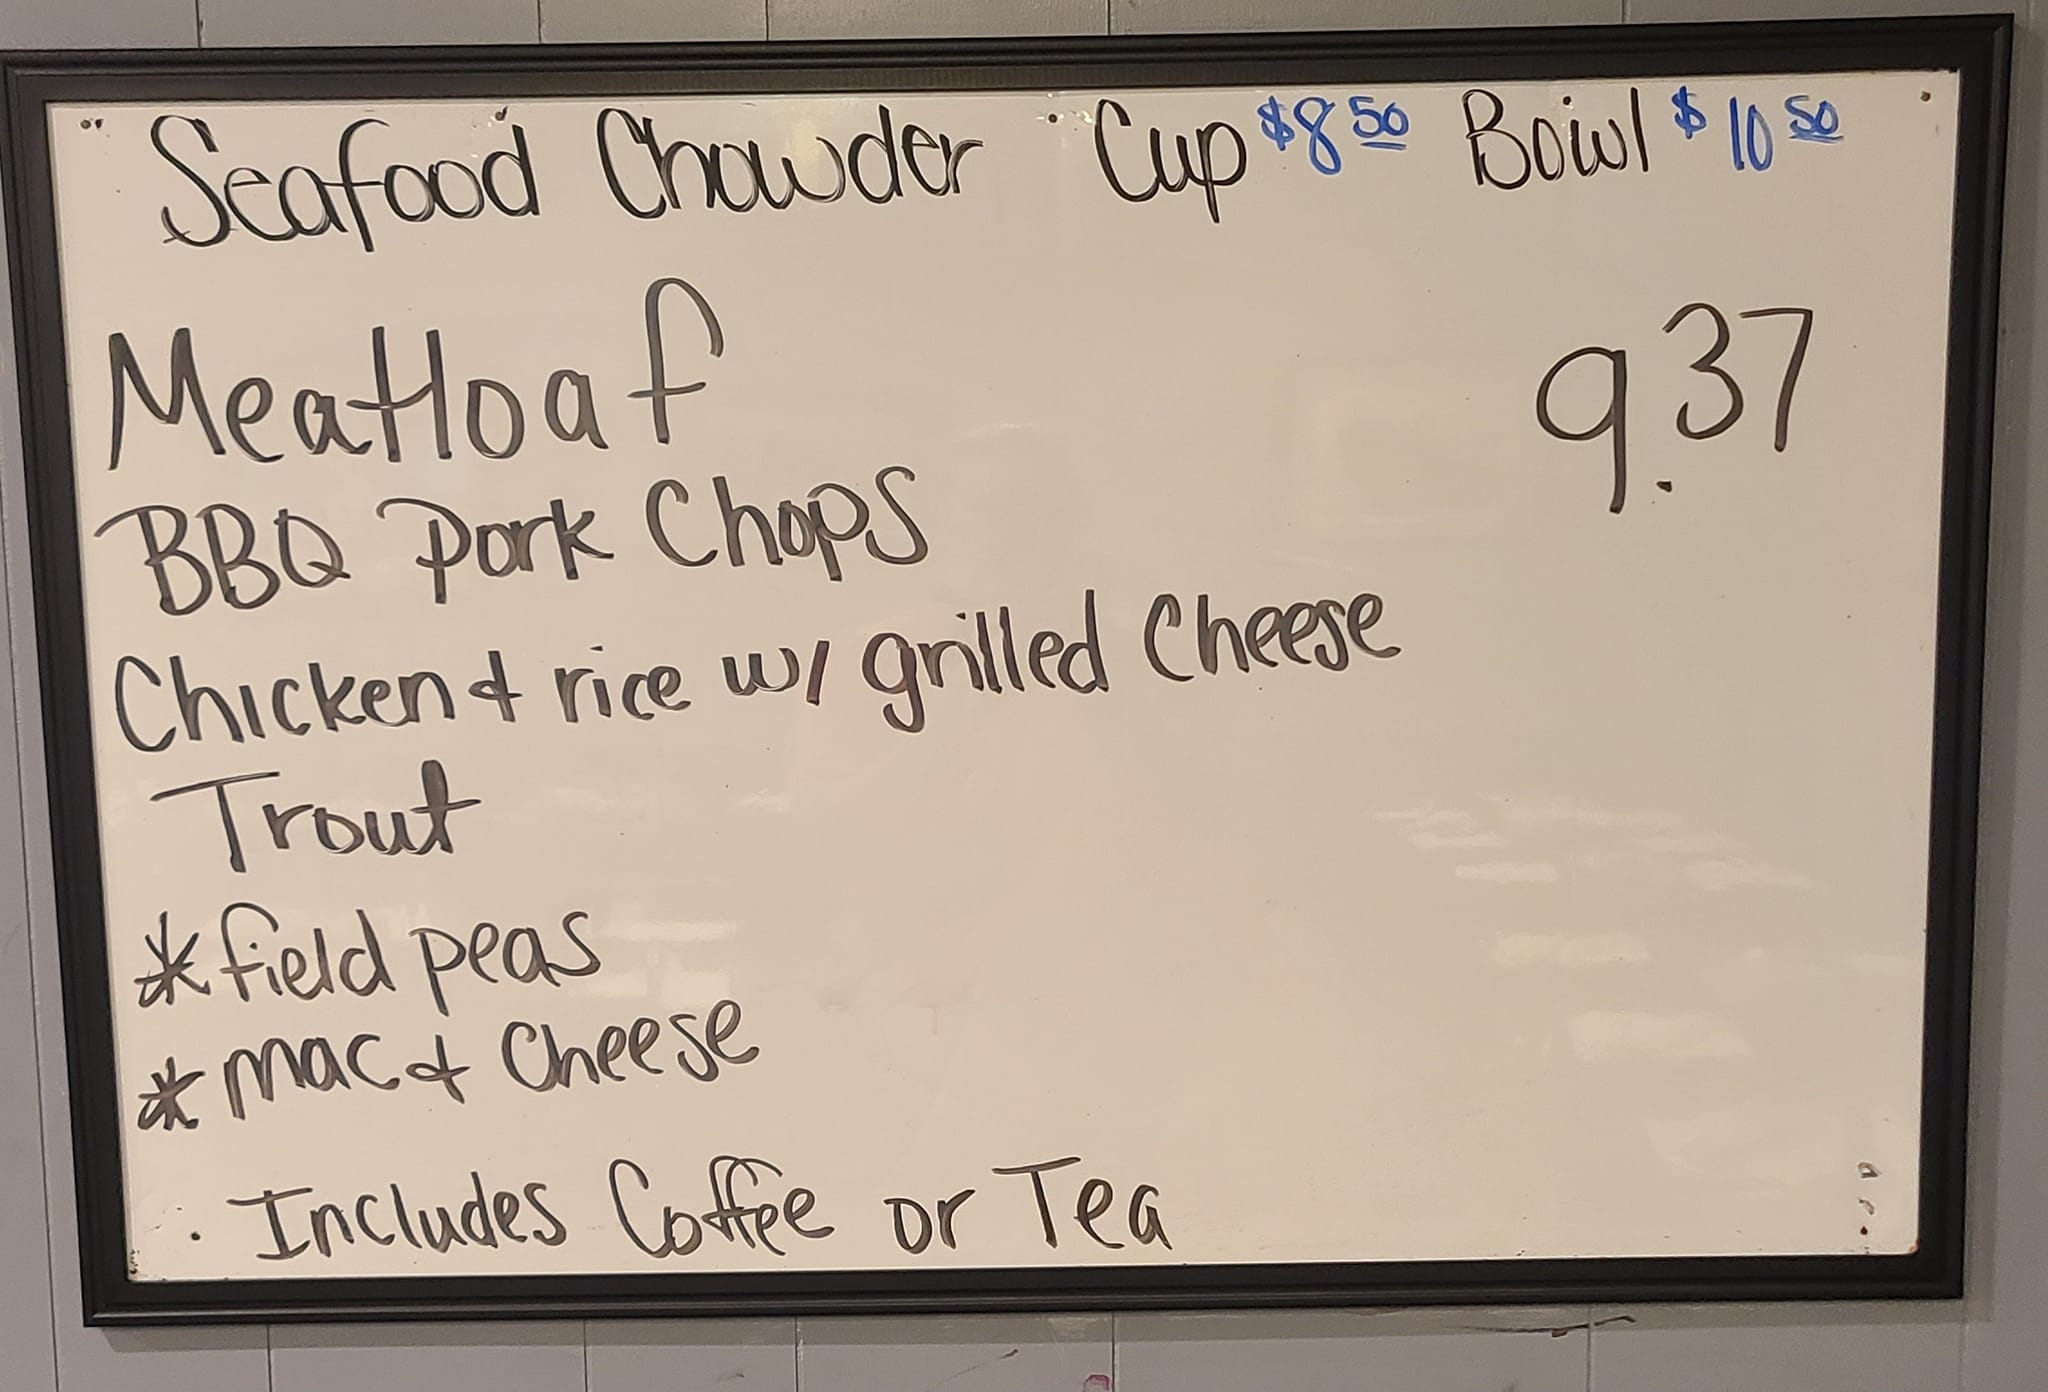 Seafood Chowder Cup $8 50 Bowl $10 50
Meatloaf 9.37
BBQ Pork Chops
Chicken & rice w/ grilled Cheese
Trout
* field peas
* mac & Cheese
· Includes Coffee or Tea